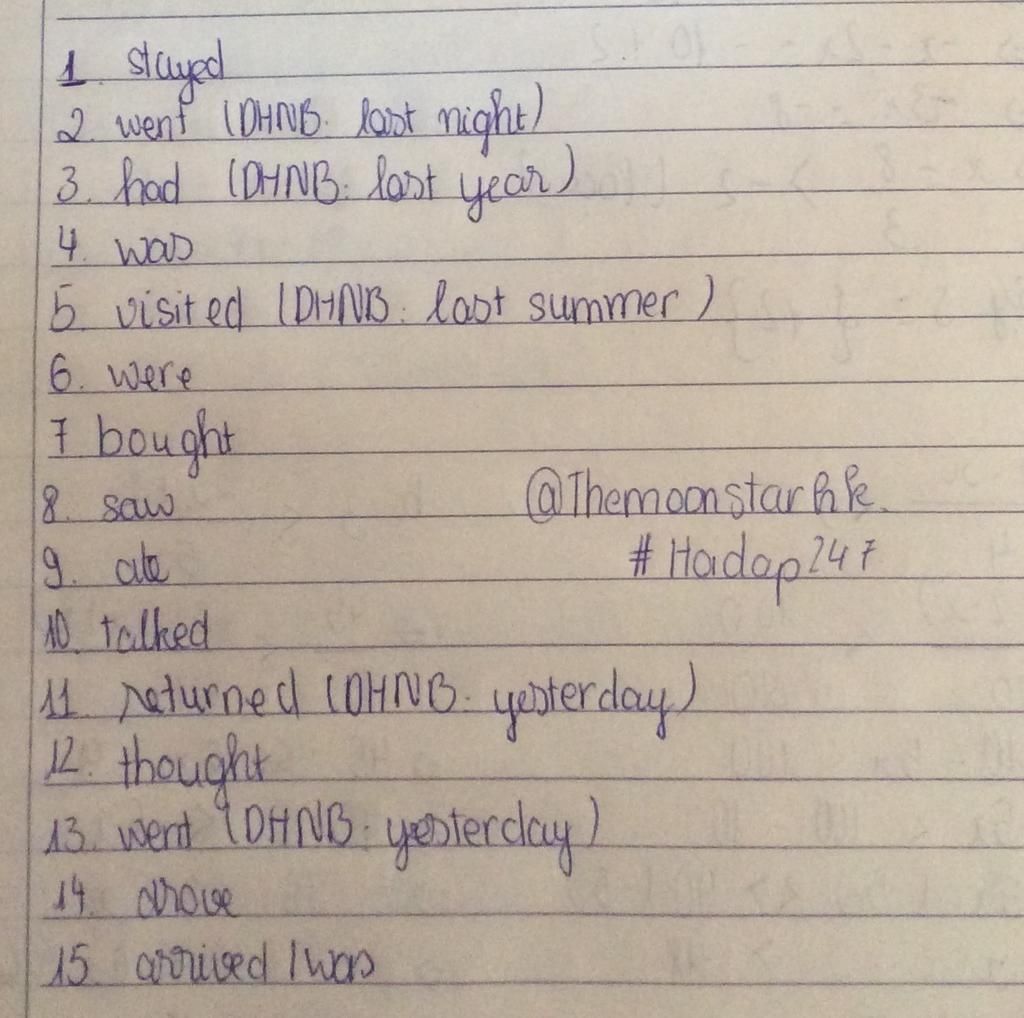 1. stayed
2. went (DHNB: last night)
3. had (DHNB: last year)
4. was
5. visited (DHNB: last summer)
6. were
7 bought
8. saw @Themoonstarhk
9. ate #Hoidap247
10. talked
11. returned (DHNB: yesterday)
12. thought
13. went (DHNB: yesterday)
14. drove
15. arrived / was